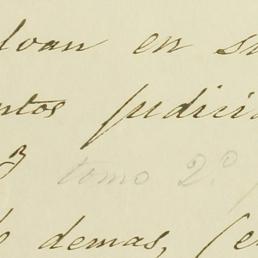 loan en su
ntos judici
3 tomo 2.º
demas, (e